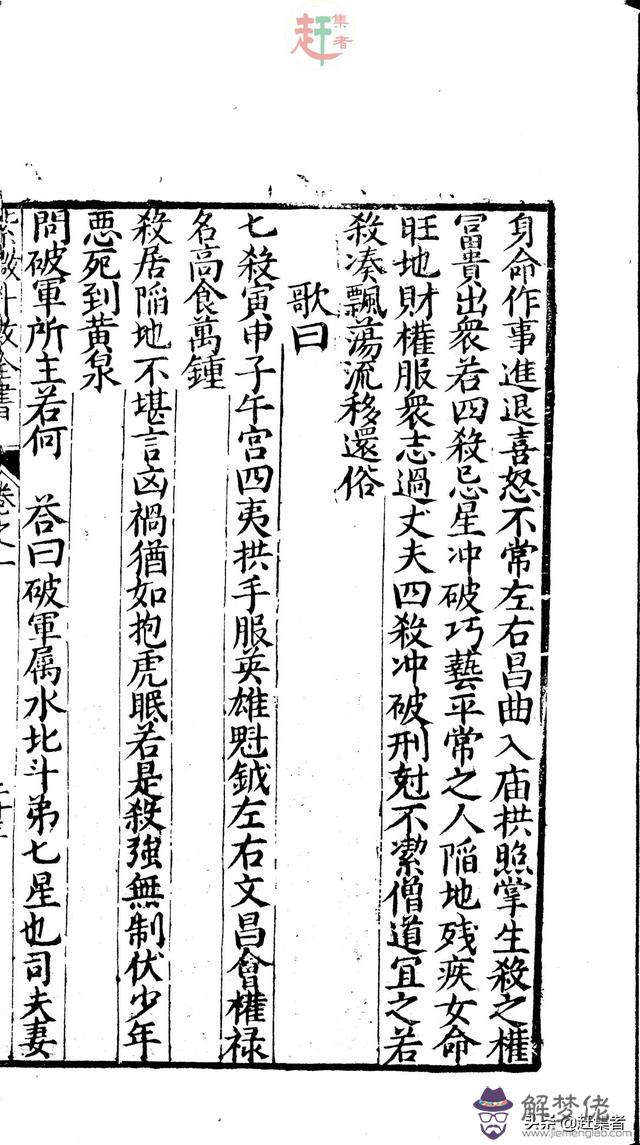 赶集者
身命作事進退喜怒不常左右昌曲入庙拱照掌生殺之權
冨貴出衆若四殺忌星冲破巧藝平常之人陥地残疾女命
旺地財權服衆志過丈夫四殺冲破刑尅不潔僧道宜之若
殺湊飄蕩流移還俗
歌曰
七殺寅申子午宫四夷拱手服英雄魁鉞左右文昌會權禄
名高食萬鍾
殺居陥地不堪言凶禍猶如抱虎眠若是殺強無制伏少年
悪死到黄泉
問破軍所主若何 答曰破軍属水北斗弟七星也司夫妻
紫微斗数全書 卷之一
二十三
解梦佬
www.jiemenglab.com
头杀@赶集者